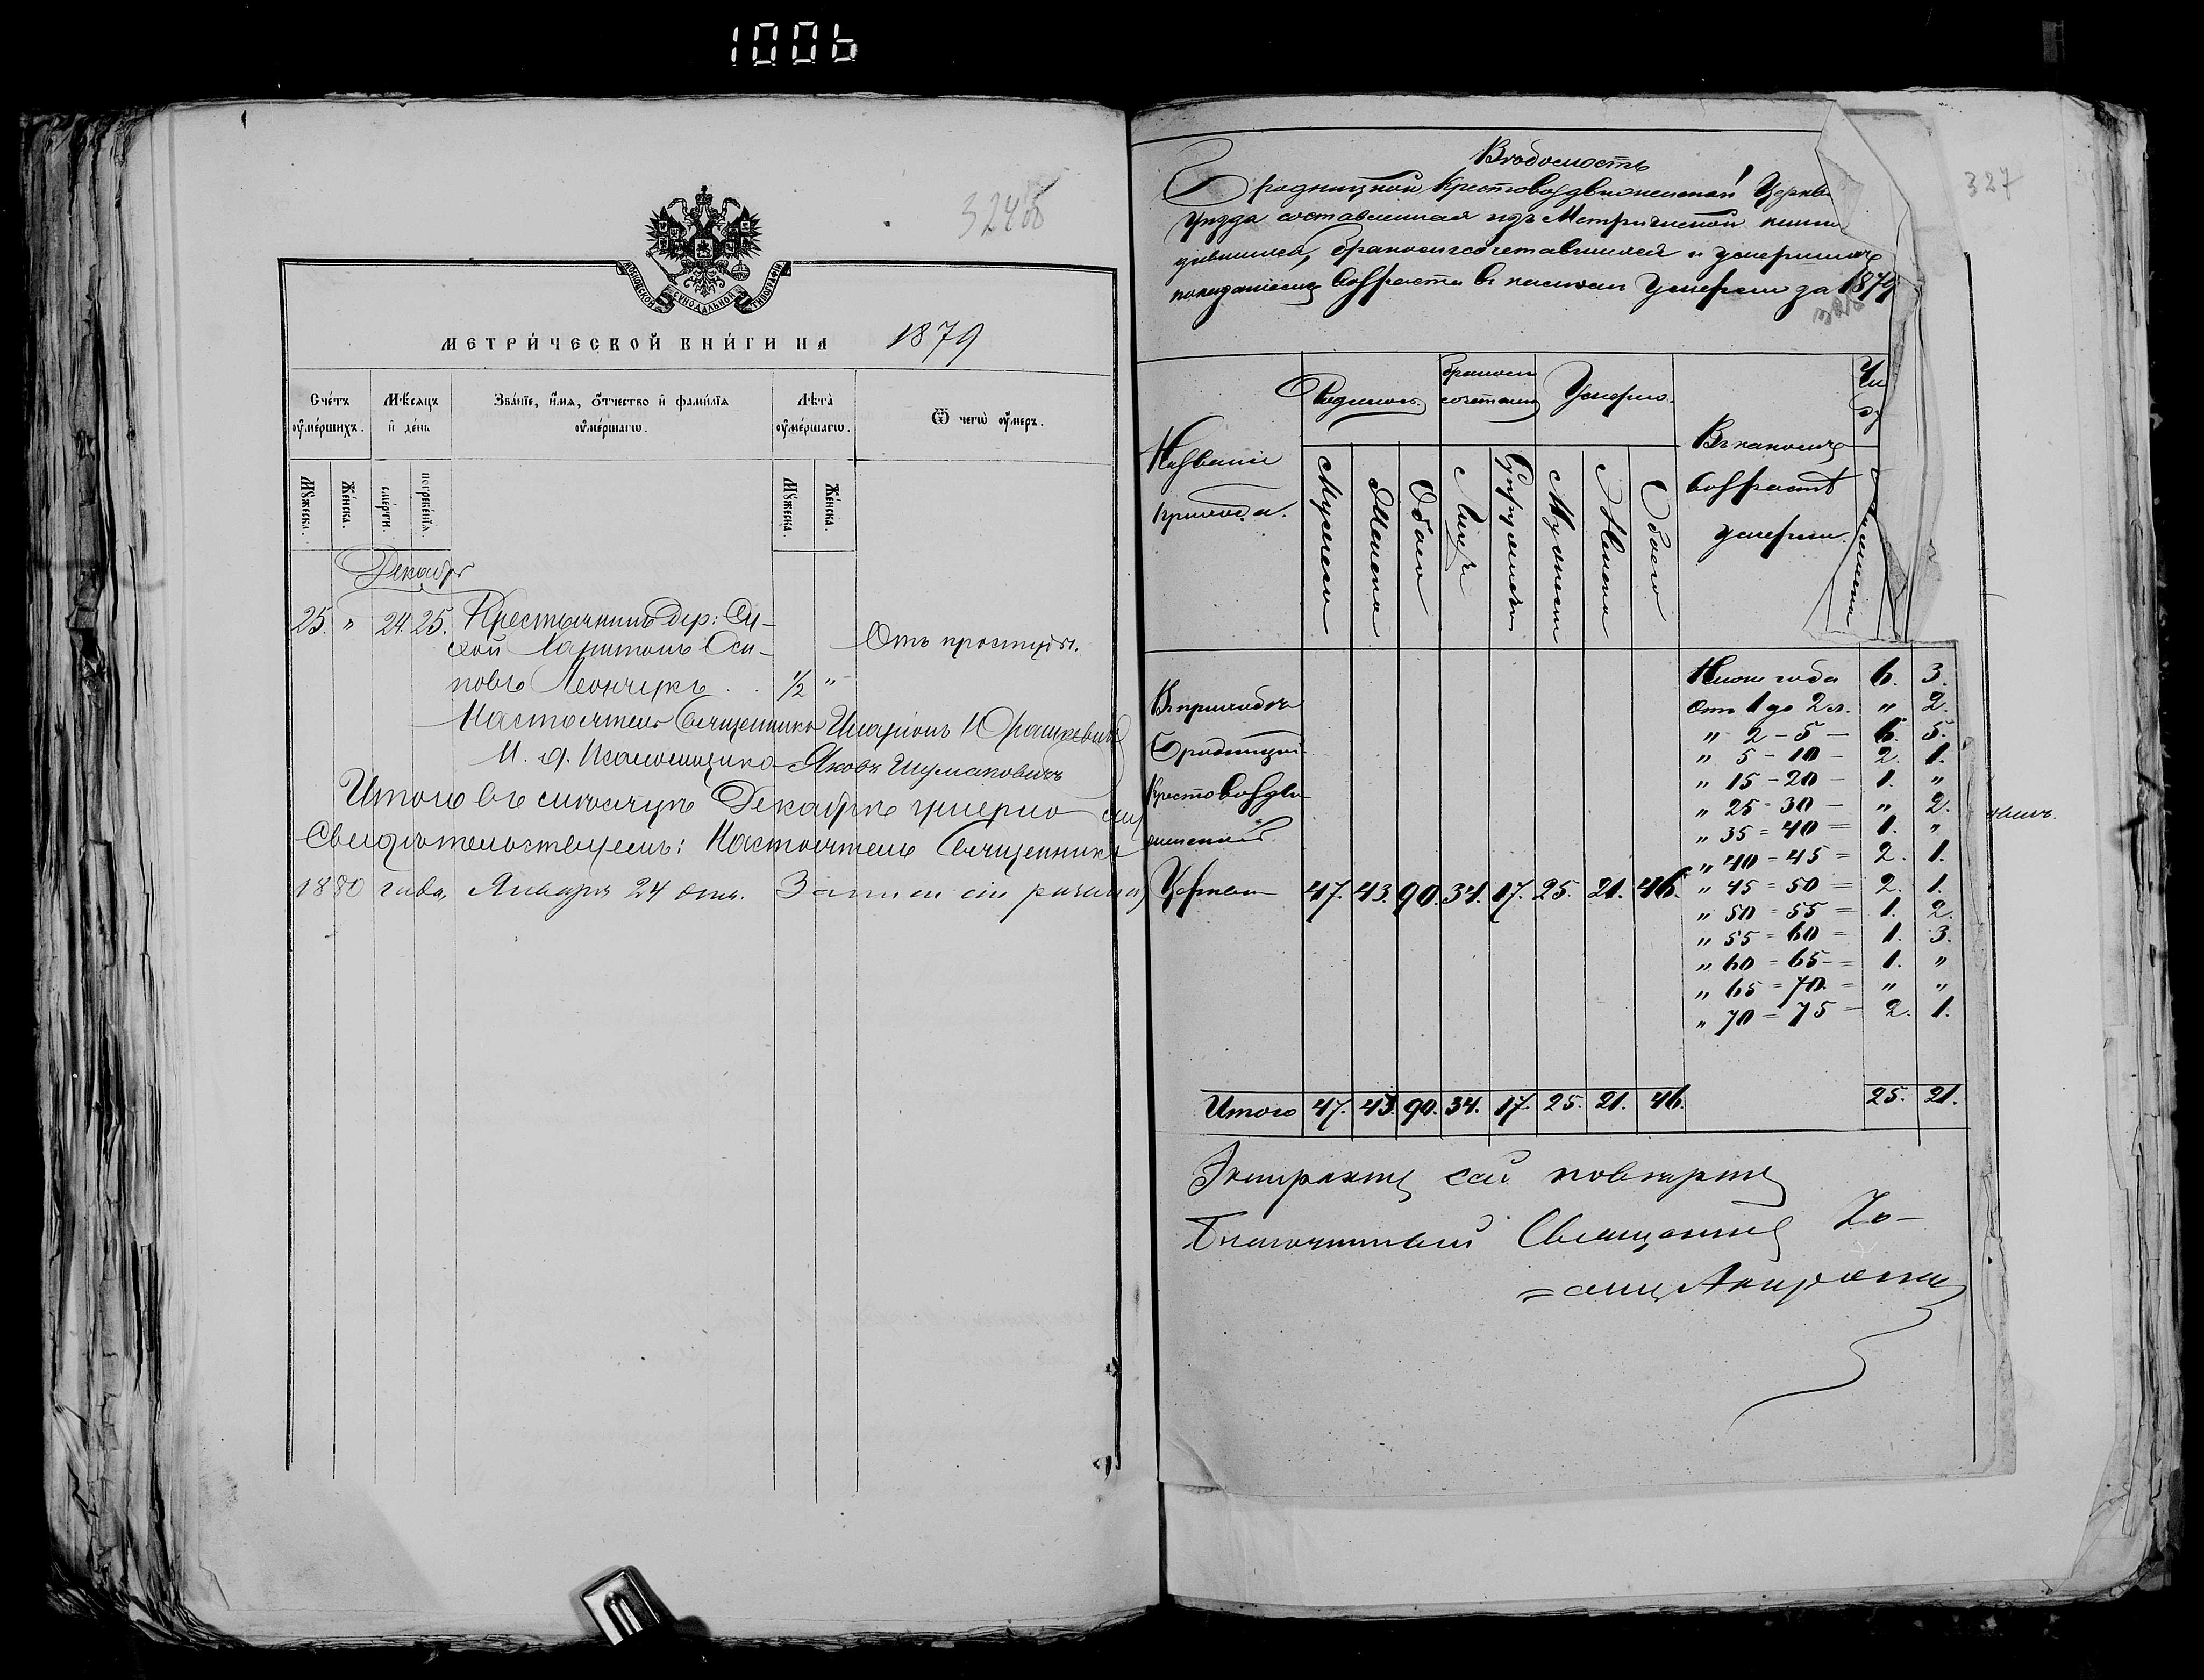 1006
324об
МОСКОВСКОЙ СѴНОДАЛЬНОЙ ТИПОГРАФІИ
МЕТРИ́ЧЕСКОЙ КНИ́ГИ НА 1879
Сче́тъ оумершихъ.
Мѣсяцъ и день
Зва́нїе, и́мѧ, о́тчество и҆ фами́лїѧ оу҆ме́ршагѡ.
Лѣта̀ оу҆ме́ршагѡ.
Ѿ чегѡ̀ оу҆́меръ.
Мꙋ́жеска.
Же́нска.
сме́рти.
погребе́нїѧ.
Мꙋ́жеска.
Же́нска.
Декабрь
25. " 24. 25. Крестьянинъ дер:
Харитонъ Оси-
повъ Леончукъ 1/2 "
Отъ простуды.
Настоятель Священникъ Иларіонъ Юрашкевичъ
И. д. Псаломщика Яковъ Шумаковичъ
Итого въ мѣсяцѣ Декабрѣ умерло
Свидѣтельствуемъ: Настоятель Священникъ
1880 года, Января 24 дня.
327
Вѣдомость
Бродницкой Крестовоздвиженской Церкви
уѣзда составленная изъ Метрической книги
дившихся, бракосочетавшихся и умершихъ
показаніемъ возраста въ какомъ умерли за 1879
Названіе
прихода.
Родилось.
Бракомъ
сочетано
Умерло.
Въ какомъ
возрастѣ
умерли.
Чи
Мужеска
Женска
Обоего
Лицъ
Супружествъ
Мужеска
Женска
Обоего
Въ приходѣ
Бродницкой
Крестовоздви
женской
Церкви 47. 43. 90. 34. 17. 25. 21. 46.
Ниже года 6. 3.
Отъ 1 до 2 л. " 2.
" 2 - 5 - 6. 5.
" 5 - 10 - 2. 1.
" 15 - 20 - 1. "
" 25 - 30 - " 2.
" 35 = 40 = 1. "
" 40 - 45 = 2. 1.
" 45 = 50 = 2. 1.
" 50 = 55 = 1. 2.
" 55 = 60 = 1. 3.
" 60 = 65 = 1. "
" 65 = 70 = " "
" 70 = 75 = 2. 1.
Итого 47. 43. 90. 34. 17. 25. 21. 46. 25. 21.
Экстрактъ сей повѣрялъ
Благочинный Священникъ